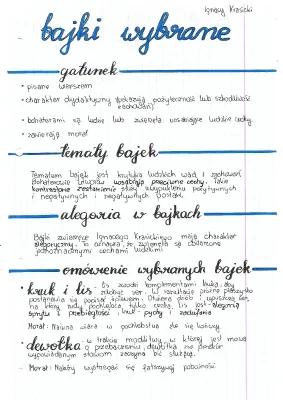 Ignacy Krasicki
bajki wybrane
gatunek
• pisane wierszem
• charakter dydaktyczny (pokazują pożyteczność lub szkodliwość
zachowań)
• bohaterami są ludzie lub zwierzęta uosabiające ludzkie cechy.
• zawierają morał
tematy bajek
Tematem bajek jest krytyka ludzkich wad i zachowań,
bohaterowie utworów uosabiają przeciwne cechy. Takie
kontrastowe zestawienie służy uwypukleniu pozytywnych
i negatywnych i negatywnych postaw.
alegoria w bajkach
Bajki zwierzęce Ignacego Krasickiego mają charakter
alegoryczny. To oznacza, że zwierzęta są obdarzone
jednoznacznymi cechami ludzkimi
omówienie wybranych bajek
• kruk i lis Lis zwodzi komplementami kruka, aby
zdobyć ser. W rezultacie próżne ptaszysko
postanawia się popisać śpiewem. Otwiera dziób i upuszcza ser,
na który rudy pochlebca tylko czeka. Lis jest alegorią
sprytu i przebiegłości, kruk - pychy i zadufania
Morał: Naiwna wiara w pochlebstwa źle się kończy.
• dewotka w trakcie modlitwy, w której jest mowa
o przebaczeniu, dewotka na przekór
wypowiadanym słowom zaczyna bić służącą.
Morał: Należy wystrzegać się fałszywej pobożności